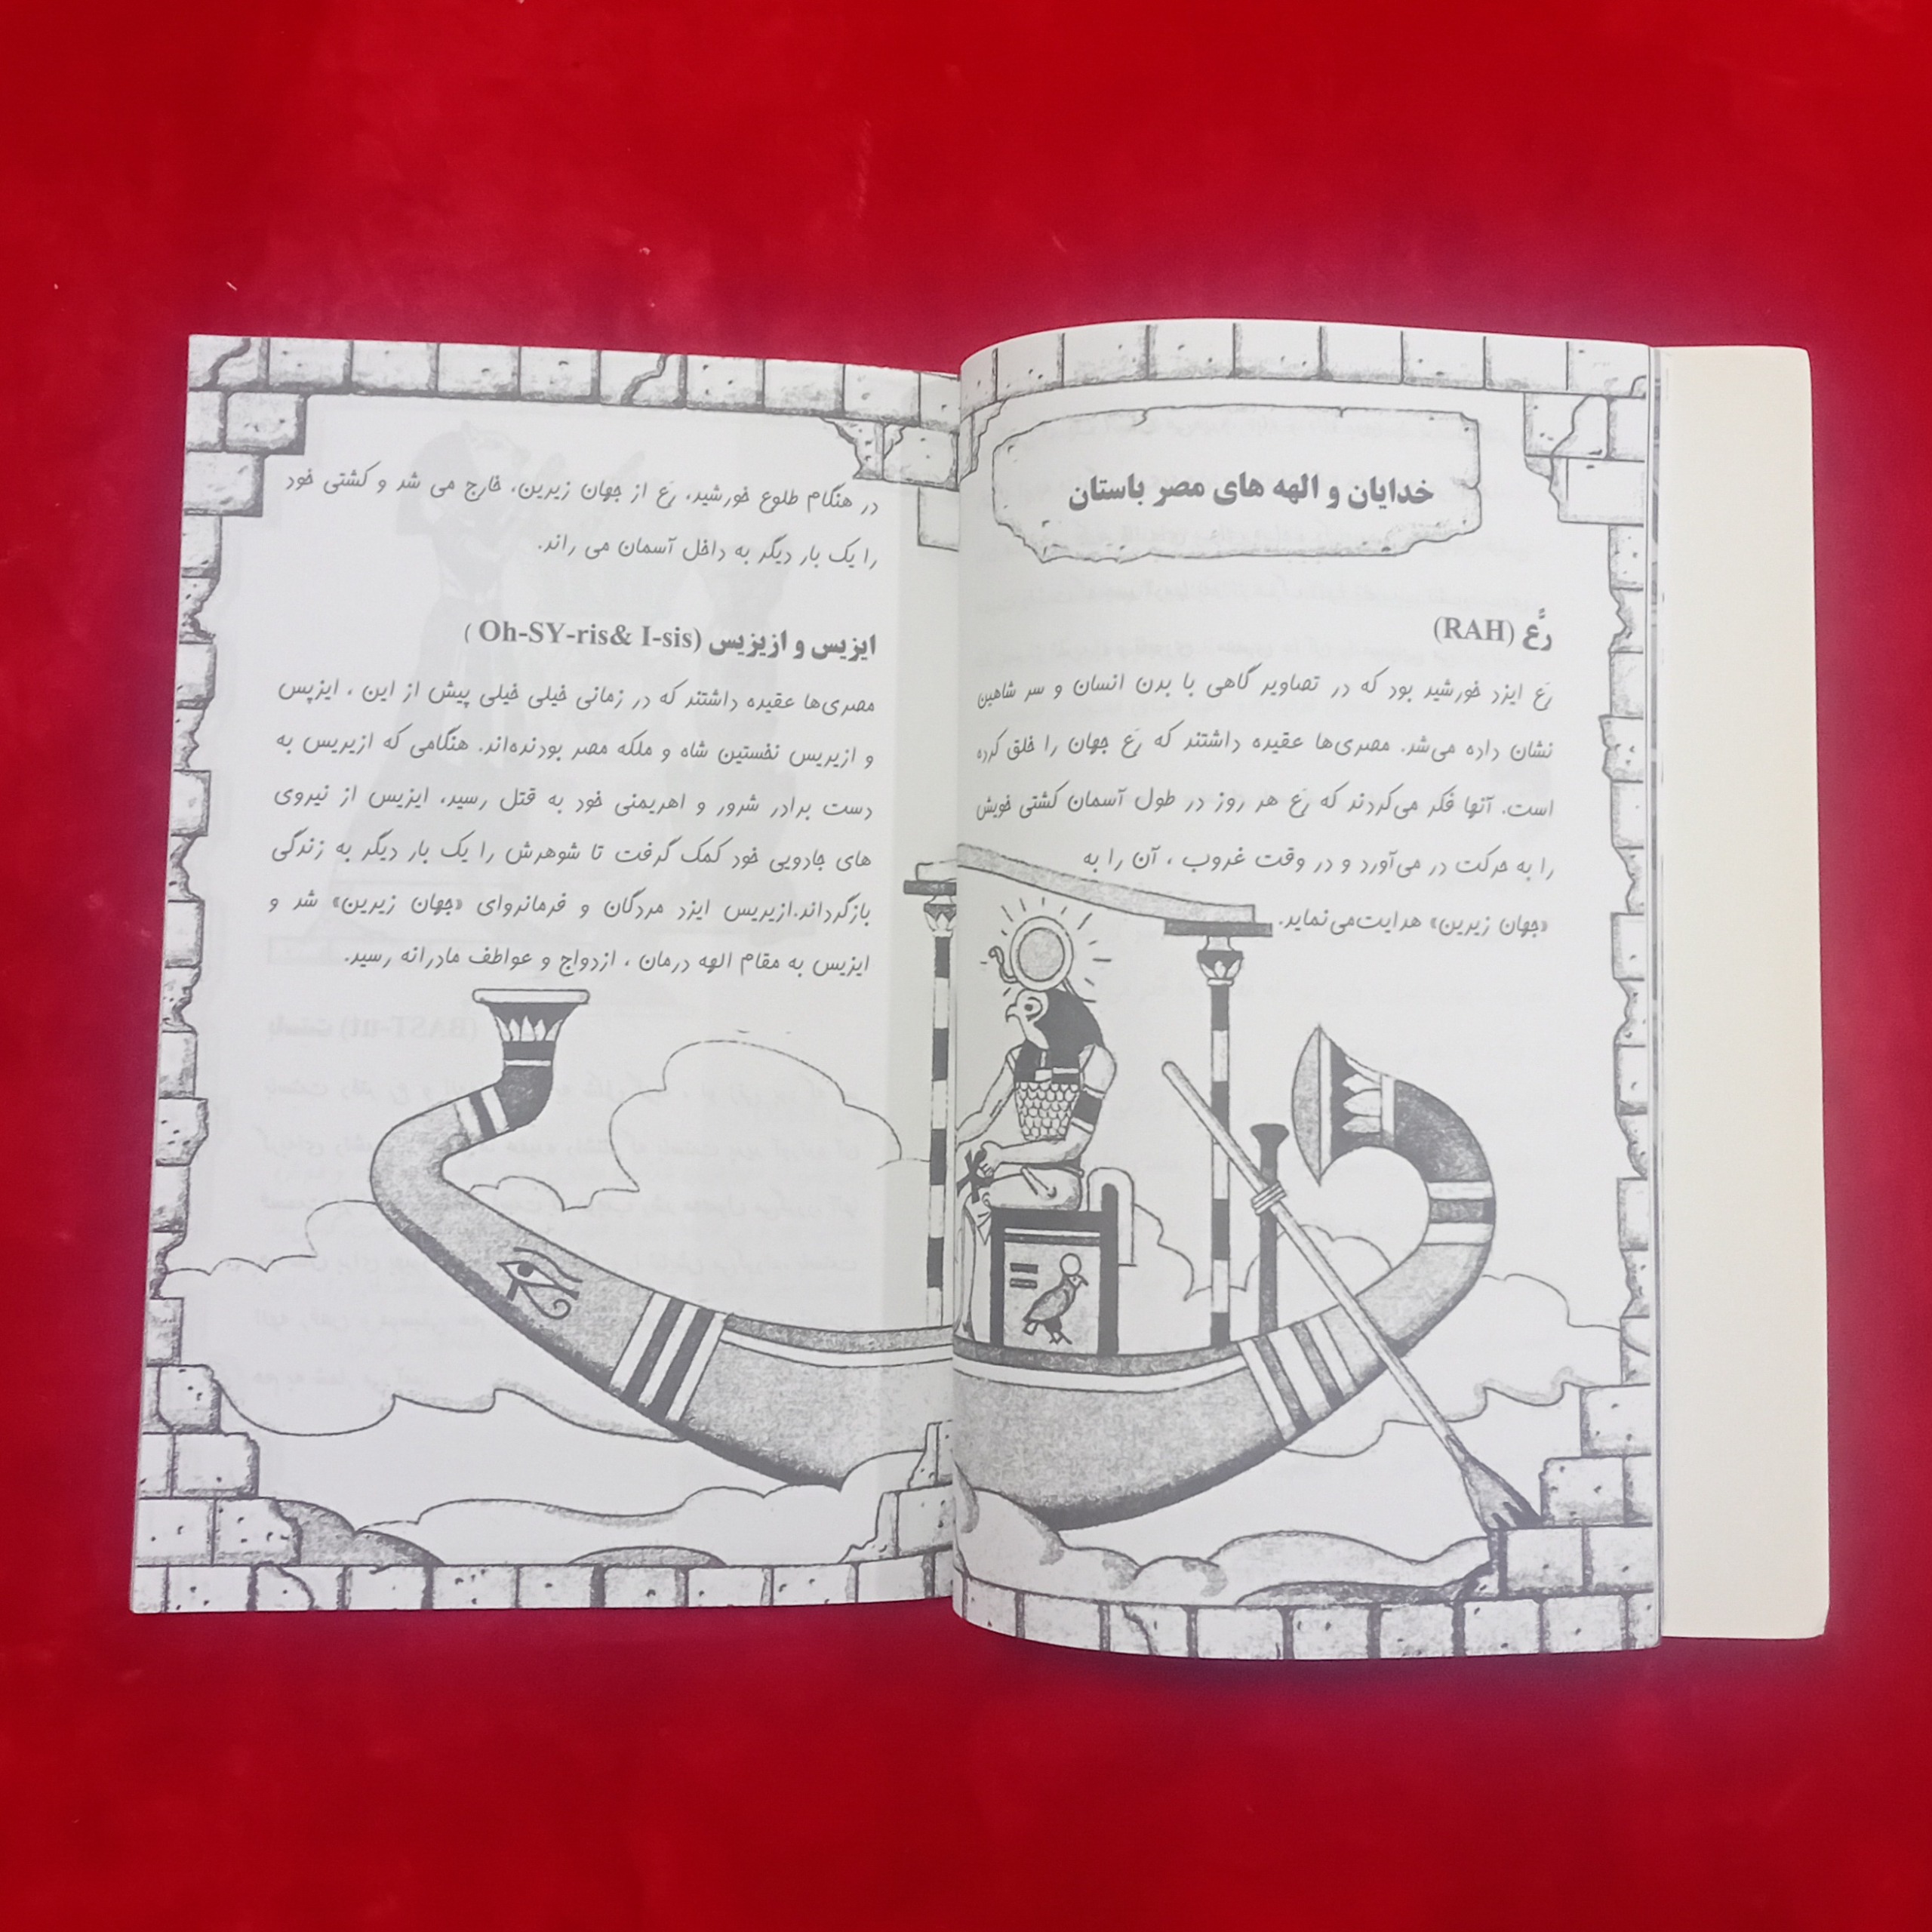 خدایان و الهه های مصر باستان
رَّع (RAH)
رَع ایزد خورشید بود که در تصاویر گاهی با بدن انسان و سر شاهین
نشان داده می‌شد. مصری‌ها عقیده داشتند که رَع جهان را خلق کرده
است. آنها فکر می‌کردند که رَع هر روز در طول آسمان کشتی خویش
را به حرکت در می‌آورد و در وقت غروب ، آن را به
«جهان زیرین» هدایت‌می‌نماید.
در هنگام طلوع خورشید، رَع از جهان زیرین، خارج می شد و کشتی خود
را یک بار دیگر به داخل آسمان می راند.
ایزیس و ازیزیس (Oh-SY-ris& I-sis )
مصری‌ها عقیده داشتند که در زمانی خیلی خیلی پیش از این ، ایزیس
و ازیریس نخستین شاه و ملکه مصر بودنده‌اند. هنگامی که ازیریس به
دست برادر شرور و اهریمنی خود به قتل رسید، ایزیس از نیروی
های جادویی خود کمک گرفت تا شوهرش را یک بار دیگر به زندگی
بازگرداند.ازیریس ایزد مردگان و فرمانروای «جهان زیرین» شد و
ایزیس به مقام الهه درمان ، ازدواج و عواطف مادرانه رسید.